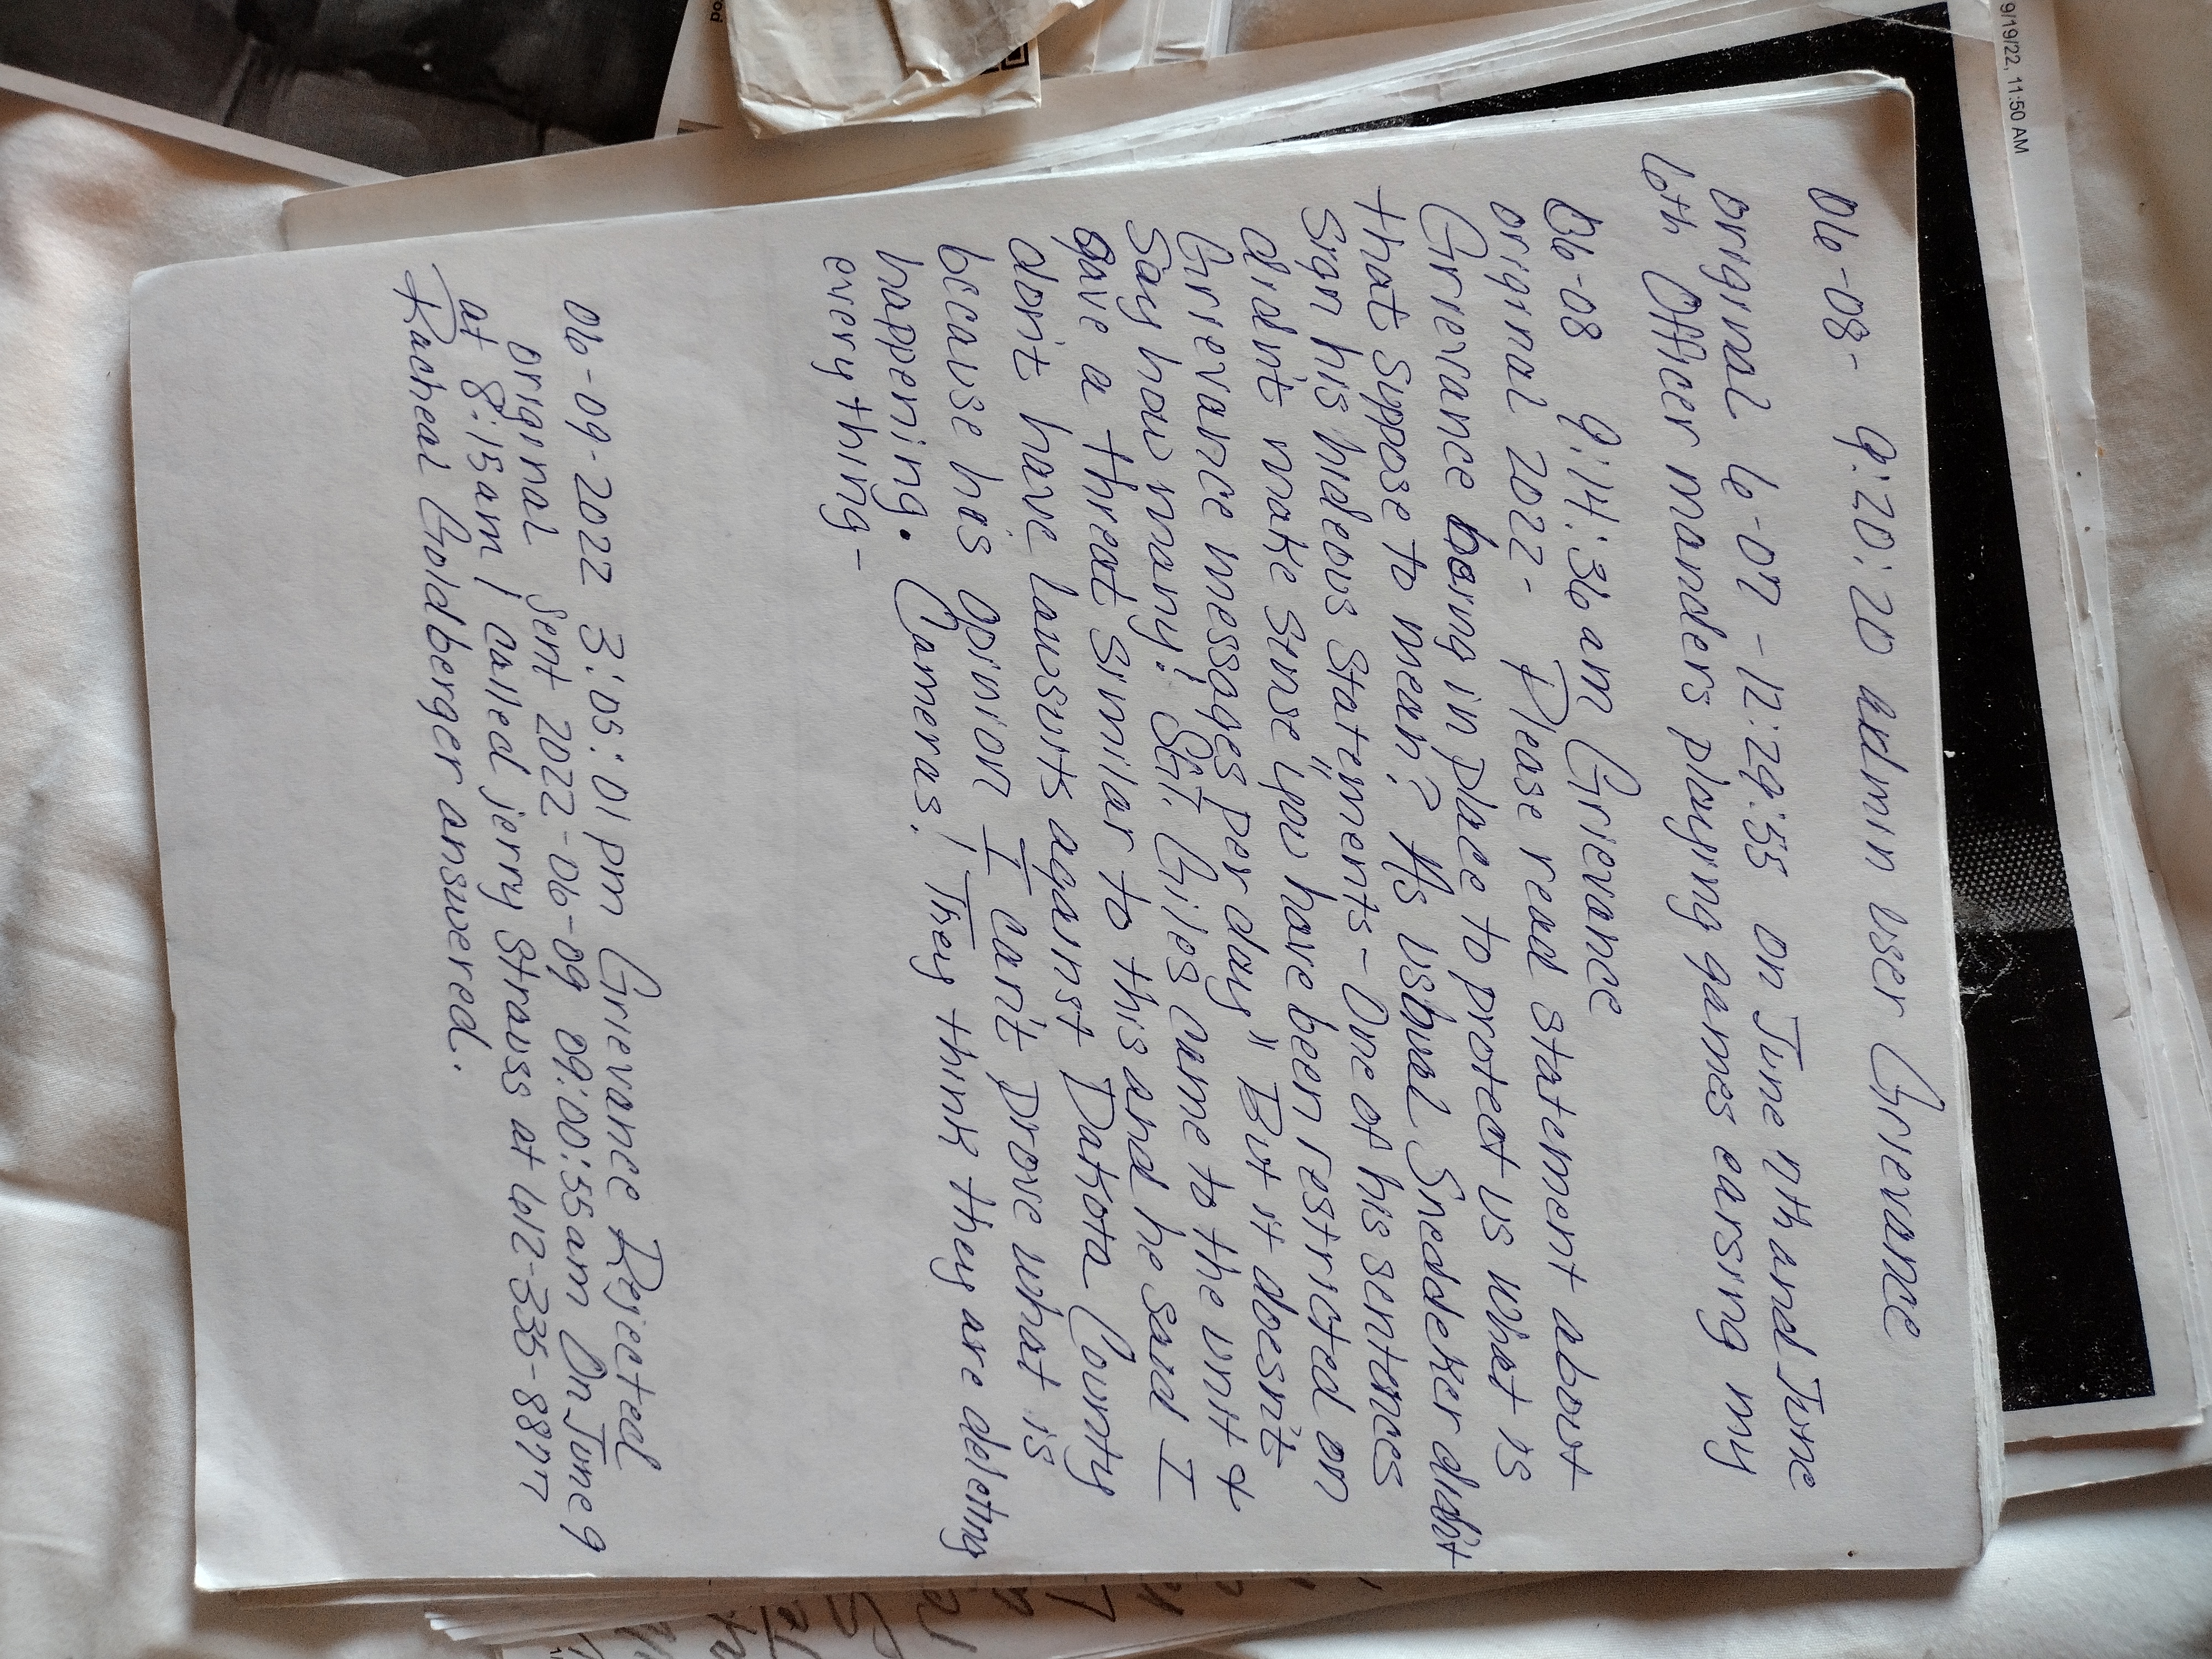 06-08- 9:20:20 admin user Grievance
original 6-07-12:29:55 on June 7th and June
6th Officer manders playing games earsing my
06-08 9:14:36 am Grievance
original 2022- Please read statement about
Grievance being in place to protect us what is
that Suppose to mean? As usbual Sneddeker didn't
Sign his hideous Statements- One of his sentences
didn't make sense "you have been restricted on
Grievance messages per day" But it doesn't
Say how many! Sgt. Giles came to the unit &
gave a threat similar to this and he said I
don't have lawsuits against Dakota County
because his opinion I can't prove what is
happening. Cameras! They think they are deleting
everything-
06-09-2022 3:05:01 pm Grievance Rejected
original Sent 2022-06-09 09:00:55am On June 9
at 8:15am I called jerry Strauss at 612-335-8877
Racheal Goldberger answered.
9/19/22, 11:50 AM